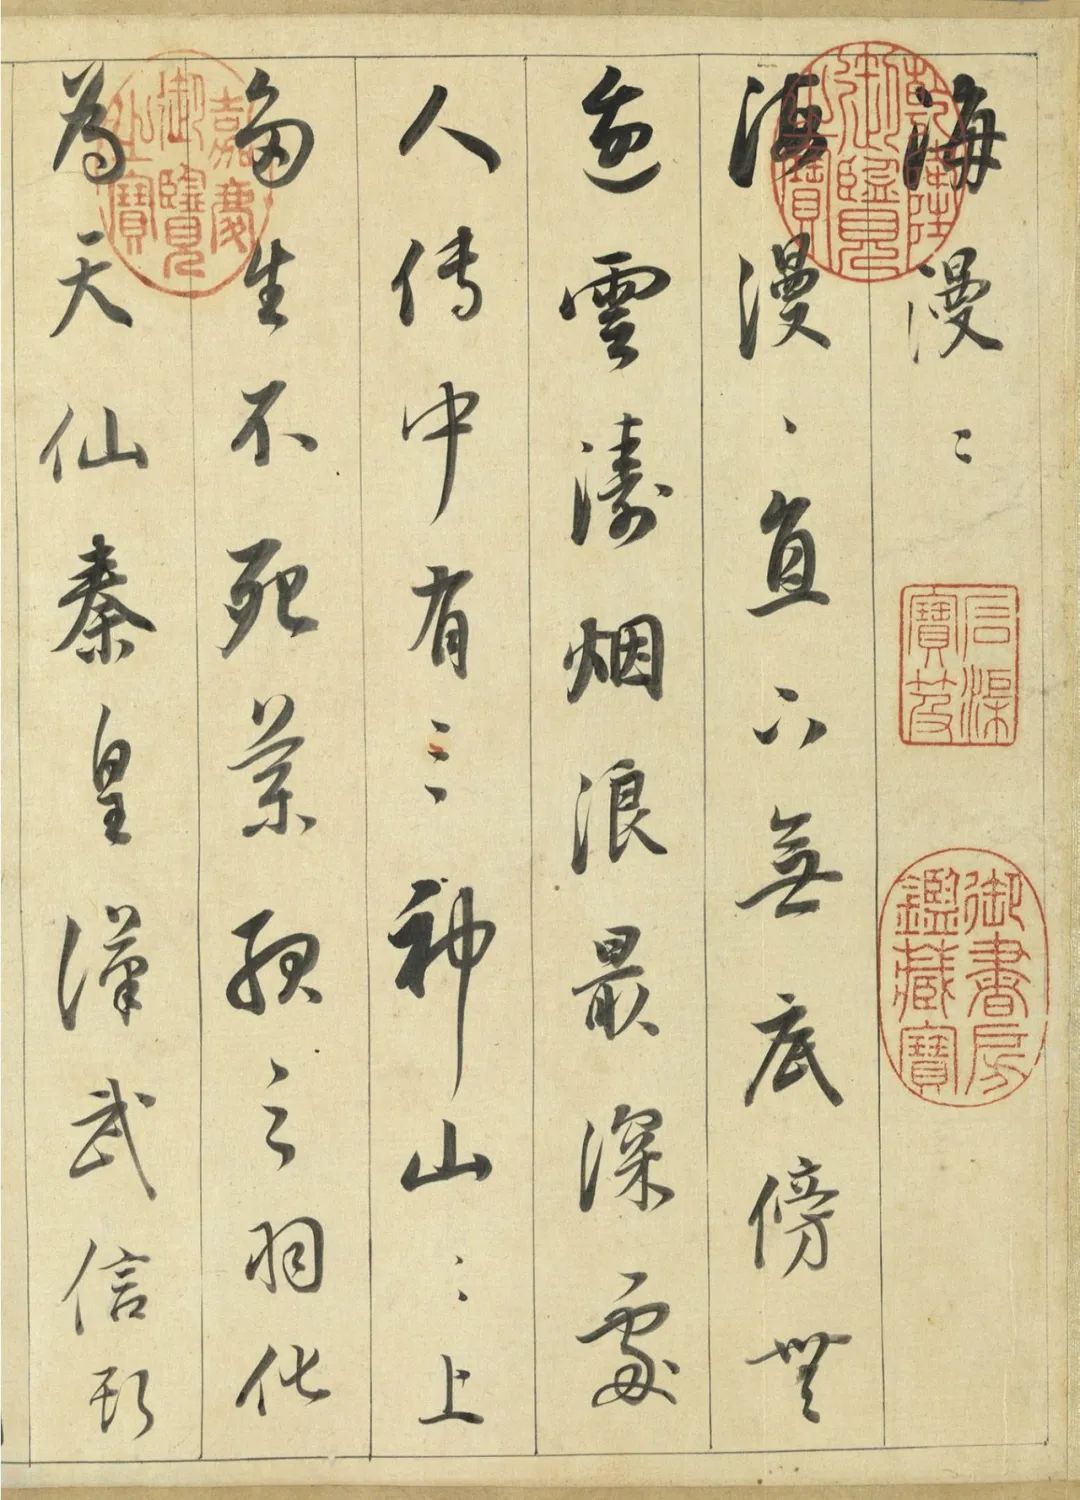 海漫〻
海漫〻直下無底傍無
邊雲濤烟浪最深處
人傳中有三神山〻上
多生不死藥服之羽化
為天仙秦皇漢武信此
乾隆御覽之寶
石渠寶笈
御書房鑑藏寶
嘉慶御覽之寶